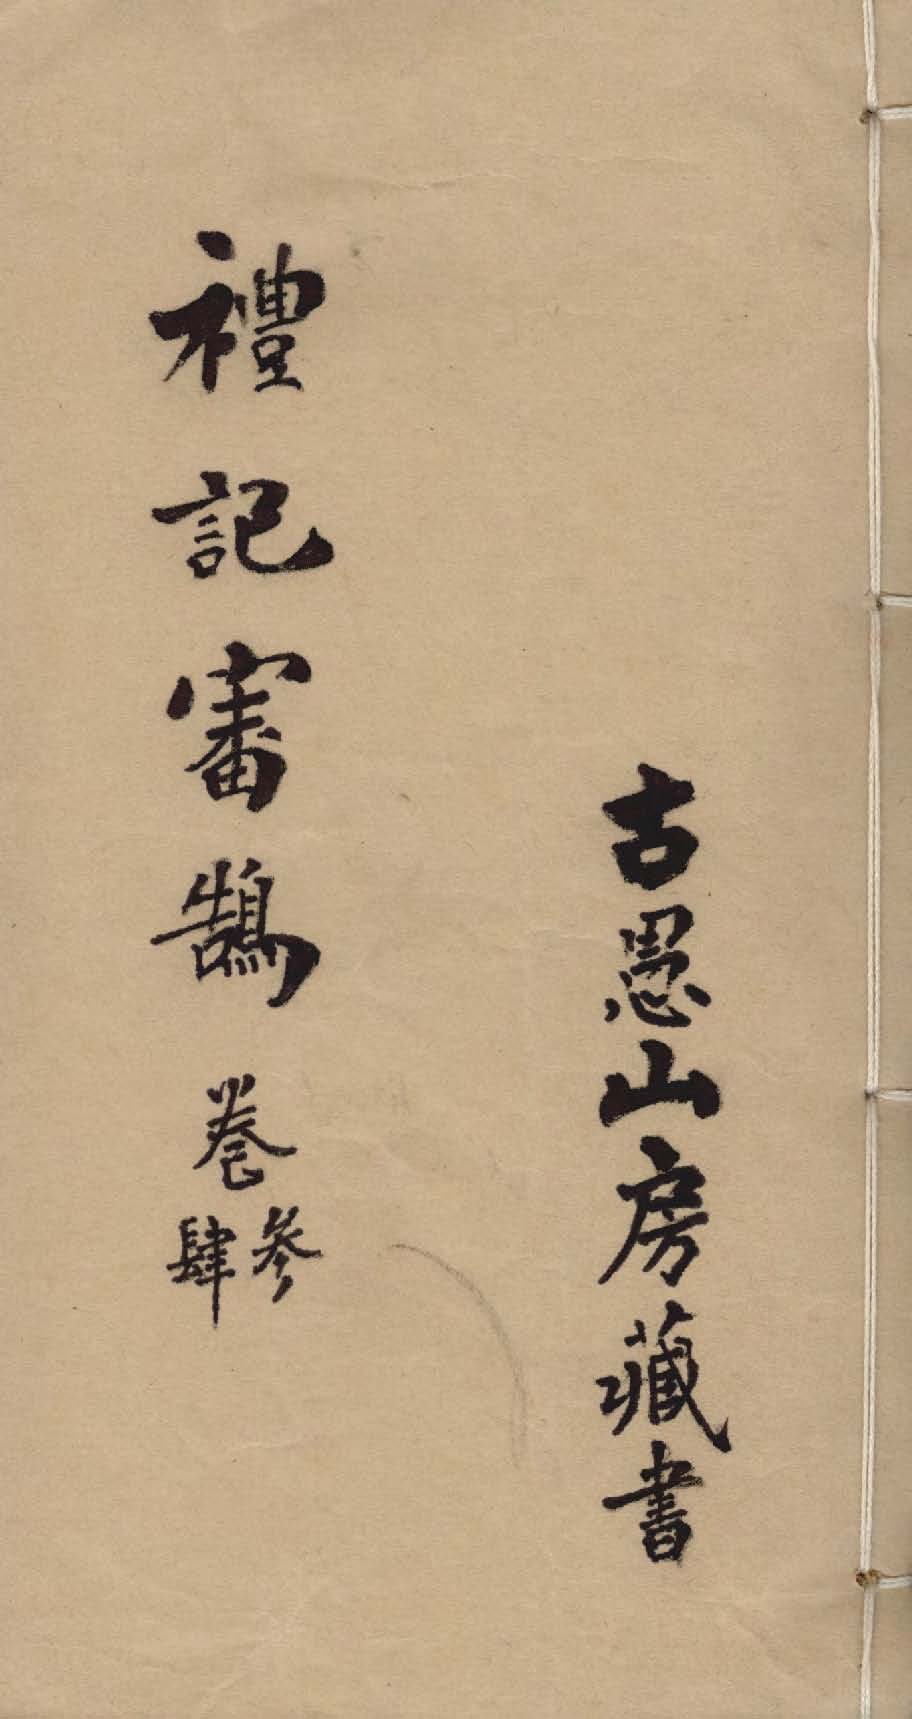 古愚山房藏書
禮記審鵠 卷
參
肆